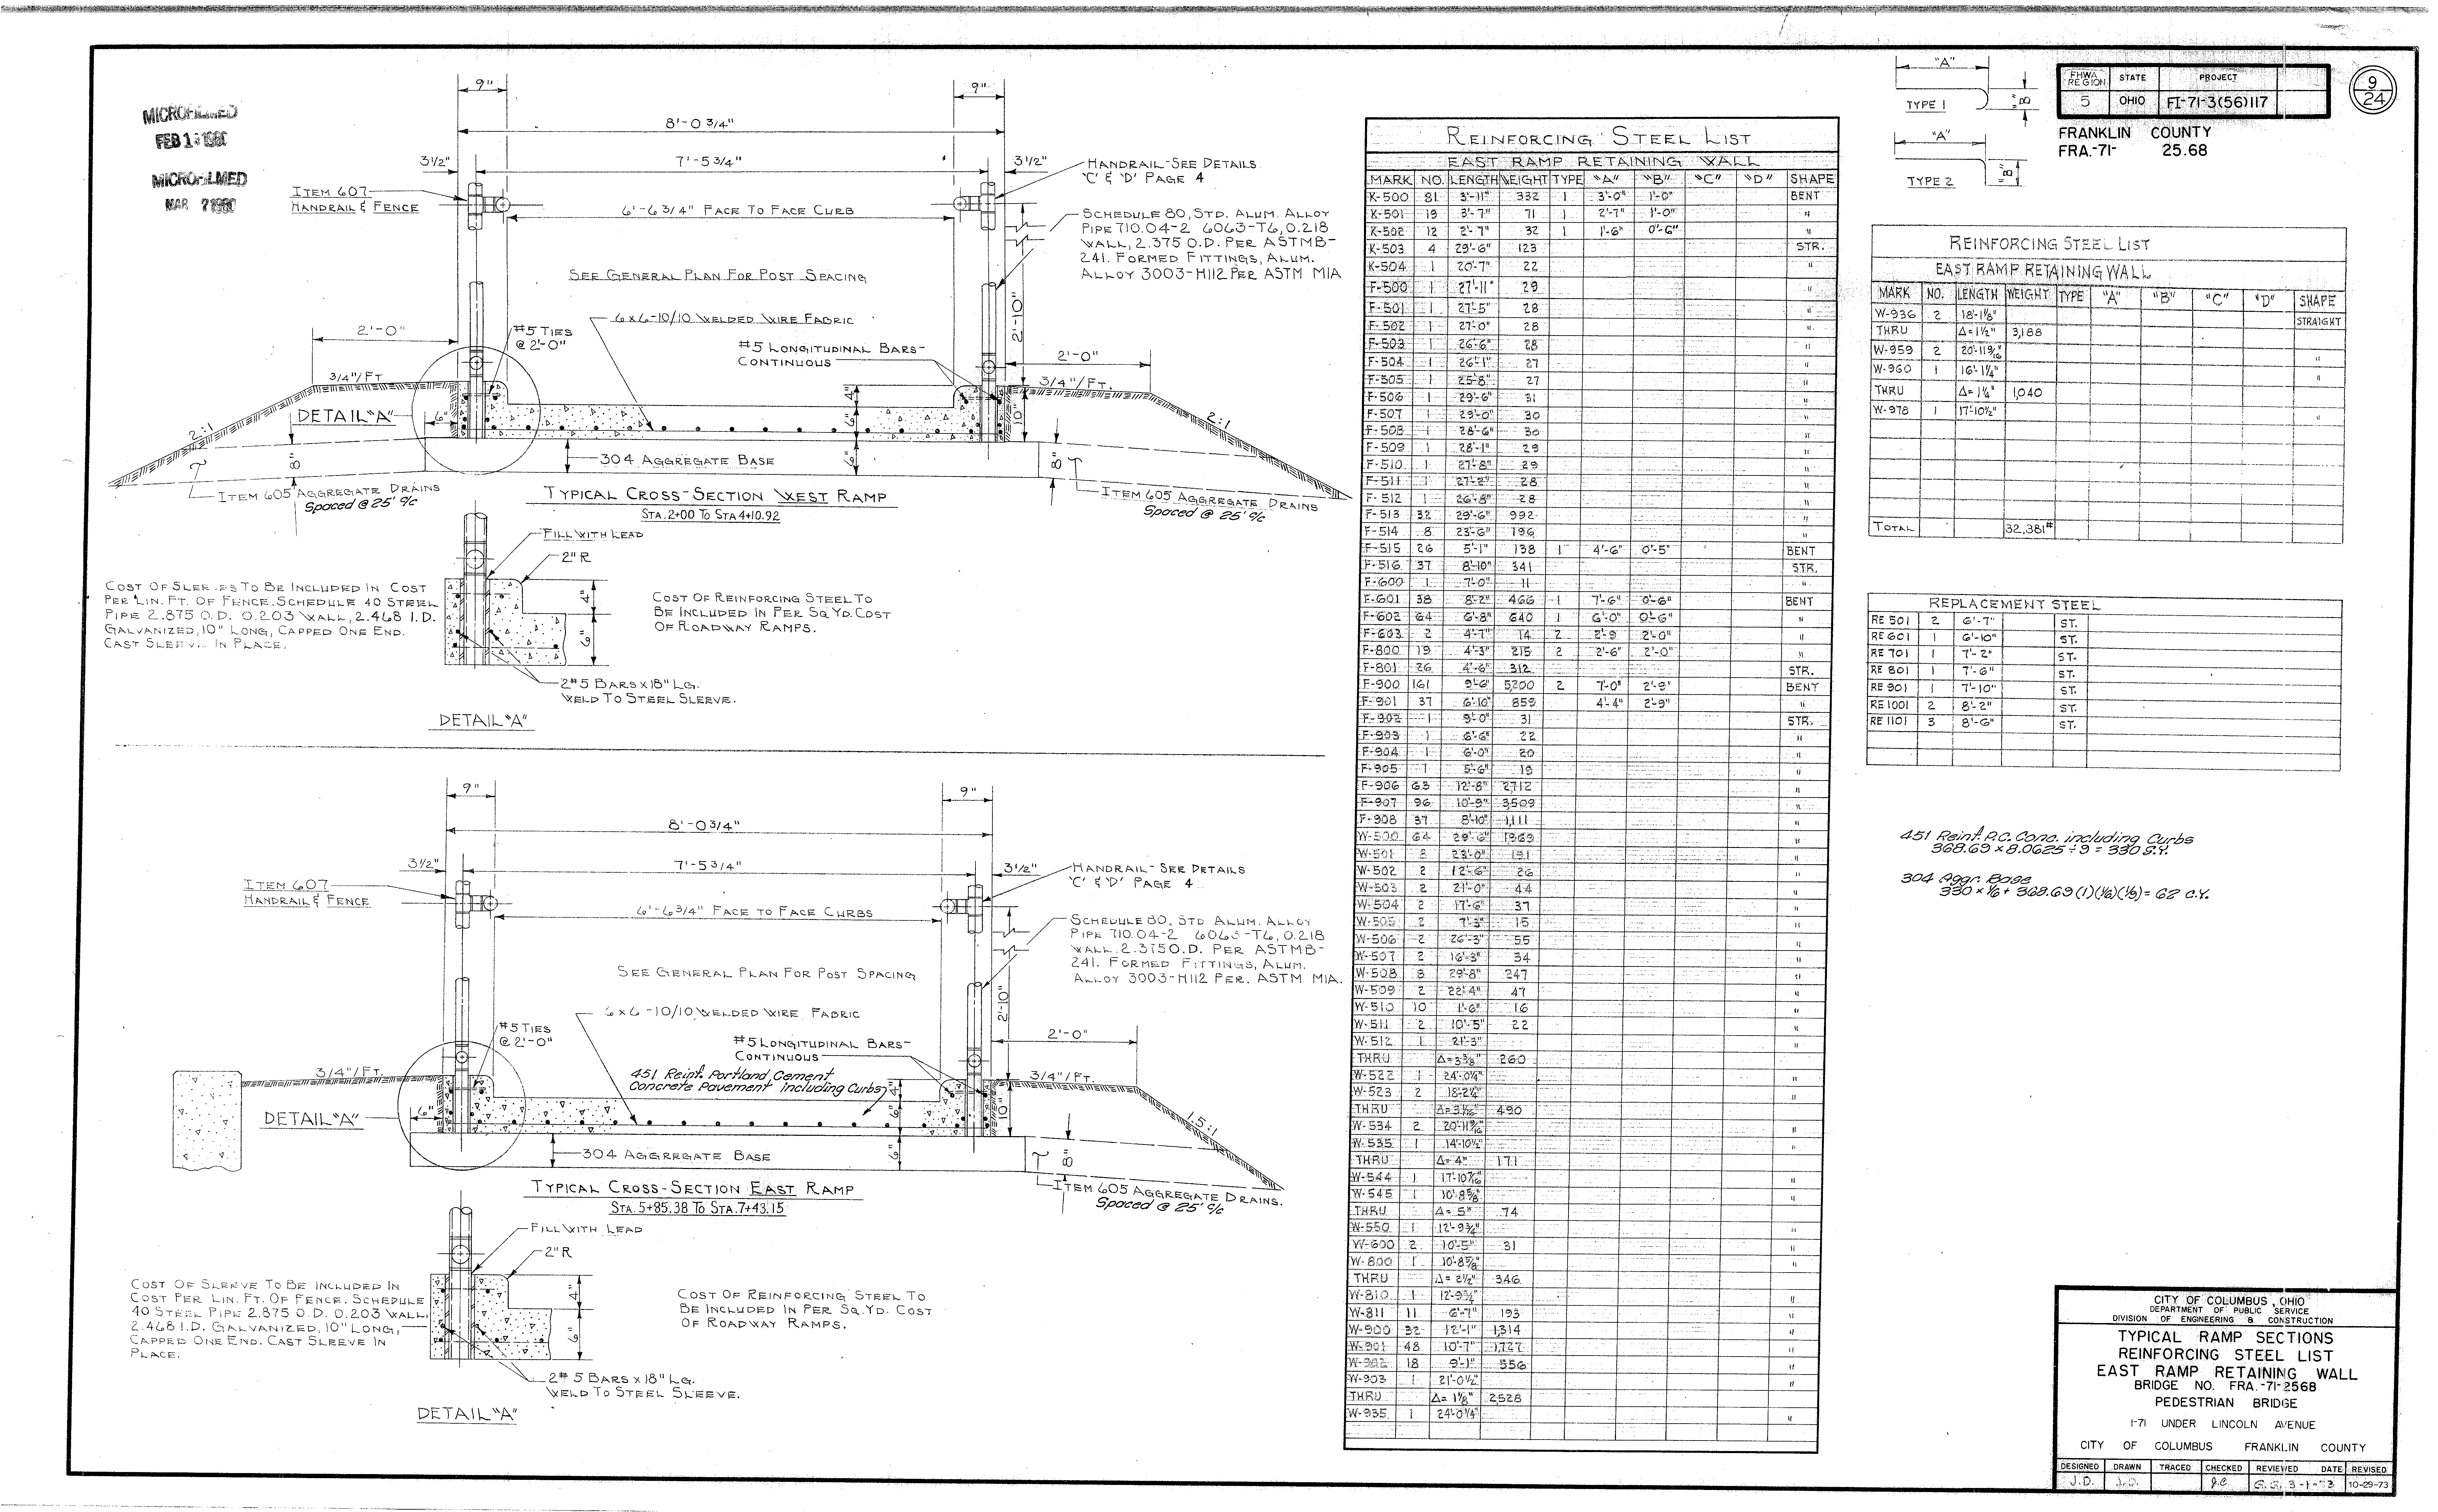 MICROFILMED
FEB 1 1980
MICROFILMED
MAR 7 1980
9"
9"
8'-0 3/4"
3 1/2"
7'-5 3/4"
3 1/2"
ITEM 607
HANDRAIL & FENCE
HANDRAIL-SEE DETAILS
'C' & 'D' PAGE 4
6'-6 3/4" FACE TO FACE CURB
SCHEDULE 80, STD. ALUM. ALLOY
PIPE 710.04-2 6063-T6, 0.218
WALL, 2.375 O.D. PER ASTMB-
241. FORMED FITTINGS, ALUM.
ALLOY 3003-H112 PER ASTM M1A
SEE GENERAL PLAN FOR POST SPACING
6x6-10/10 WELDED WIRE FABRIC
2'-0"
#5 TIES
@ 2'-0"
#5 LONGITUDINAL BARS-
CONTINUOUS
2'-10"
2'-0"
3/4"/FT
3/4"/FT.
DETAIL "A"
6"
4"
6"
10"
2:1
2:1
8"
304 AGGREGATE BASE
6"
8"
ITEM 605 AGGREGATE DRAINS
Spaced @ 25' c/c
TYPICAL CROSS-SECTION WEST RAMP
STA. 2+00 TO STA 4+10.92
ITEM 605 AGGREGATE DRAINS
Spaced @ 25' c/c
FILL WITH LEAD
2" R
COST OF SLEEVES TO BE INCLUDED IN COST
PER LIN. FT. OF FENCE. SCHEDULE 40 STEEL
PIPE 2.875 O.D. 0.203 WALL, 2.468 I.D.
GALVANIZED, 10" LONG, CAPPED ONE END.
CAST SLEEVE IN PLACE.
4"
6"
COST OF REINFORCING STEEL TO
BE INCLUDED IN PER SQ. YD. COST
OF ROADWAY RAMPS.
2#5 BARS x 18" LG.
WELD TO STEEL SLEEVE.
DETAIL "A"
9"
9"
8'-0 3/4"
3 1/2"
7'-5 3/4"
3 1/2"
ITEM 607
HANDRAIL & FENCE
HANDRAIL-SEE DETAILS
'C' & 'D' PAGE 4
6'-6 3/4" FACE TO FACE CURBS
SCHEDULE 80, STD ALUM. ALLOY
PIPE 710.04-2 6063-T6, 0.218
WALL, 2.375 O.D. PER ASTMB-
241. FORMED FITTINGS, ALUM.
ALLOY 3003-H112 PER. ASTM M1A.
SEE GENERAL PLAN FOR POST SPACING
6x6-10/10 WELDED WIRE FABRIC
#5 TIES
@ 2'-0"
#5 LONGITUDINAL BARS-
CONTINUOUS
2'-10"
2'-0"
451 Reinf. Portland Cement
Concrete Pavement Including Curbs
3/4"/FT.
3/4"/FT.
DETAIL "A"
6"
4"
6"
10"
1.5:1
304 AGGREGATE BASE
6"
8"
TYPICAL CROSS-SECTION EAST RAMP
STA. 5+85.38 TO STA. 7+43.15
ITEM 605 AGGREGATE DRAINS.
Spaced @ 25' c/c
FILL WITH LEAD
2" R
COST OF SLEEVE TO BE INCLUDED IN
COST PER LIN. FT. OF FENCE. SCHEDULE
40 STEEL PIPE 2.875 O.D. 0.203 WALL,
2.468 I.D. GALVANIZED, 10" LONG,
CAPPED ONE END. CAST SLEEVE IN
PLACE.
4"
6"
COST OF REINFORCING STEEL TO
BE INCLUDED IN PER SQ. YD. COST
OF ROADWAY RAMPS.
2#5 BARS x 18" LG.
WELD TO STEEL SLEEVE.
DETAIL "A"
REINFORCING STEEL LIST
EAST RAMP RETAINING WALL
MARK NO. LENGTH WEIGHT TYPE "A" "B" "C" "D" SHAPE
K-500 81 3'-11" 332 1 3'-0" 1'-0" BENT
K-501 19 3'-7" 71 1 2'-7" 1'-0" "
K-502 12 2'-7" 32 1 1'-6" 0'-6" "
K-503 4 29'-6" 123 STR.
K-504 1 20'-7" 22 "
F-500 1 27'-11" 29 "
F-501 1 27'-5" 28 "
F-502 1 27'-0" 28 "
F-503 1 26'-6" 28 "
F-504 1 26'-1" 27 "
F-505 1 25'-8" 27 "
F-506 1 29'-6" 31 "
F-507 1 29'-0" 30 "
F-508 1 28'-6" 30 "
F-509 1 28'-1" 29 "
F-510 1 27'-8" 29 "
F-511 1 27'-2" 28 "
F-512 1 26'-8" 28 "
F-513 32 29'-6" 992 "
F-514 8 23'-6" 196 "
F-515 26 5'-1" 138 1 4'-6" 0'-5" BENT
F-516 37 8'-10" 341 STR.
F-600 1 7'-0" 11 "
F-601 38 8'-2" 466 1 7'-6" 0'-6" BENT
F-602 64 6'-8" 640 1 6'-0" 0'-6" "
F-603 2 4'-7" 14 2 2'-9 2'-0" "
F-800 19 4'-3" 215 2 2'-6" 2'-0" "
F-801 26 4'-6" 312 STR.
F-900 161 9'-6" 5,200 2 7'-0" 2'-9" BENT
F-901 37 6'-10" 859 4'-4" 2'-9" "
F-902 1 9'-0" 31 STR.
F-903 1 6'-6" 22 "
F-904 1 6'-0" 20 "
F-905 1 5'-6" 19 "
F-906 63 12'-8" 2,712 "
F-907 96 10'-9" 3,509 "
F-908 37 8'-10" 1,111 "
W-500 64 29'-6" 1969 "
W-501 8 23'-0" 191 "
W-502 2 12'-6" 26 "
W-503 2 21'-0" 44 "
W-504 2 17'-6" 37 "
W-505 2 7'-3" 15 "
W-506 2 26'-3" 55 "
W-507 2 16'-3" 34 "
W-508 8 29'-8" 247 "
W-509 2 22'-4" 47 "
W-510 10 1'-6" 16 "
W-511 2 10'-5" 22 "
W-512 1 21'-3"
THRU Δ=3 3/8" 260
W-522 1 24'-0 1/4" "
W-523 2 18'-2 1/4" "
THRU Δ=3 1/16" 490
W-534 2 20'-11 9/16" "
W-535 1 14'-10 1/2" "
THRU Δ=4" 171
W-544 1 17'-10 7/16" "
W-545 1 10'-8 5/8" "
THRU Δ=5" 74
W-550 1 12'-9 3/4" "
W-600 2 10'-5" 31 "
W-800 1 10'-8 5/8" "
THRU Δ=2 1/2" 346
W-810 1 12'-9 3/4" "
W-811 11 6'-7" 193 "
W-900 32 12'-1" 1,314 "
W-901 48 10'-7" 1,727 "
W-902 18 9'-1" 556 "
W-903 1 21'-0 1/2" "
THRU Δ=1 1/8" 2,528
W-935 1 24'-0 1/4" "
"A"
TYPE 1
"B"
"A"
TYPE 2
"B"
FHWA REGION STATE PROJECT
5 OHIO FI-71-3(56)117
9
24
FRANKLIN COUNTY
FRA.-71- 25.68
REINFORCING STEEL LIST
EAST RAMP RETAINING WALL
MARK NO. LENGTH WEIGHT TYPE "A" "B" "C" "D" SHAPE
W-936 2 18'-1 1/8" STRAIGHT
THRU Δ=1 1/2" 3,188
W-959 2 20'-11 9/16" "
W-960 1 16'-1 1/4" "
THRU Δ=1 1/4" 1,040
W-978 1 17'-10 1/2" "
TOTAL 32,381#
REPLACEMENT STEEL
RE 501 2 6'-7" ST.
RE 601 1 6'-10" ST.
RE 701 1 7'-2" ST.
RE 801 1 7'-6" ST.
RE 901 1 7'-10" ST.
RE 1001 2 8'-2" ST.
RE 1101 3 8'-6" ST.
451 Reinf. P.C. Conc. including Curbs
368.69 x 8.0625 ÷ 9 = 330 S.Y.
304 Aggr. Base
330 x 1/6 + 368.69 (1)(1/6)(1/9) = 62 C.Y.
CITY OF COLUMBUS, OHIO
DEPARTMENT OF PUBLIC SERVICE
DIVISION OF ENGINEERING & CONSTRUCTION
TYPICAL RAMP SECTIONS
REINFORCING STEEL LIST
EAST RAMP RETAINING WALL
BRIDGE NO. FRA.-71-2568
PEDESTRIAN BRIDGE
I-71 UNDER LINCOLN AVENUE
CITY OF COLUMBUS FRANKLIN COUNTY
DESIGNED DRAWN TRACED CHECKED REVIEWED DATE REVISED
J.D. J.D. J.C. G.G. 3-1-73 10-29-73